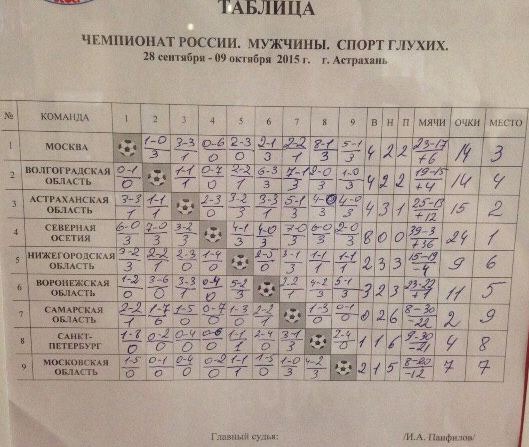 ТАБЛИЦА
ЧЕМПИОНАТ РОССИИ. МУЖЧИНЫ. СПОРТ ГЛУХИХ.
28 сентября - 09 октября 2015 г. г. Астрахань
№ КОМАНДА 1 2 3 4 5 6 7 8 9 В Н П МЯЧИ ОЧКИ МЕСТО
1 МОСКВА 1-0 3-3 0-6 2-3 2-1 2-2 8-1 5-1 4 2 2 23-17 14 3
3 1 0 0 3 1 3 3 +6
2 ВОЛГОГРАДСКАЯ ОБЛАСТЬ 0-1 1-1 0-7 2-2 6-3 7-1 2-0 1-0 4 2 2 19-15 14 4
0 1 0 1 3 3 3 3 +4
3 АСТРАХАНСКАЯ ОБЛАСТЬ 3-3 1-1 2-3 3-2 3-3 5-1 4-0 4-0 4 3 1 25-13 15 2
1 1 0 3 1 3 3 3 +12
4 СЕВЕРНАЯ ОСЕТИЯ 6-0 7-0 3-2 4-1 4-0 7-0 6-0 2-0 8 0 0 39-3 24 1
3 3 3 3 3 3 3 3 +36
5 НИЖЕГОРОДСКАЯ ОБЛАСТЬ 3-2 2-2 2-3 1-4 3-1 1-1 1-1 2 3 3 15-19 9 6
3 1 0 0 0 3 1 1 -4
6 ВОРОНЕЖСКАЯ ОБЛАСТЬ 1-2 3-6 3-3 0-4 5-2 2-2 4-2 5-1 3 2 3 23-22 11 5
0 0 1 0 3 1 3 3 +1
7 САМАРСКАЯ ОБЛАСТЬ 2-2 1-7 1-5 0-7 1-3 2-2 1-3 0-1 0 2 6 8-30 2 9
1 0 0 0 0 1 0 0 -22
8 САНКТ-ПЕТЕРБУРГ 1-8 0-2 0-4 0-6 1-1 2-4 3-1 2-4 1 1 6 9-30 4 8
0 0 0 0 1 0 3 0 -21
9 МОСКОВСКАЯ ОБЛАСТЬ 1-5 0-1 0-4 0-2 1-1 1-5 1-0 4-2 2 1 5 8-20 7 7
0 0 0 0 1 0 3 3 -12
Главный судья: /И.А. Панфилов/